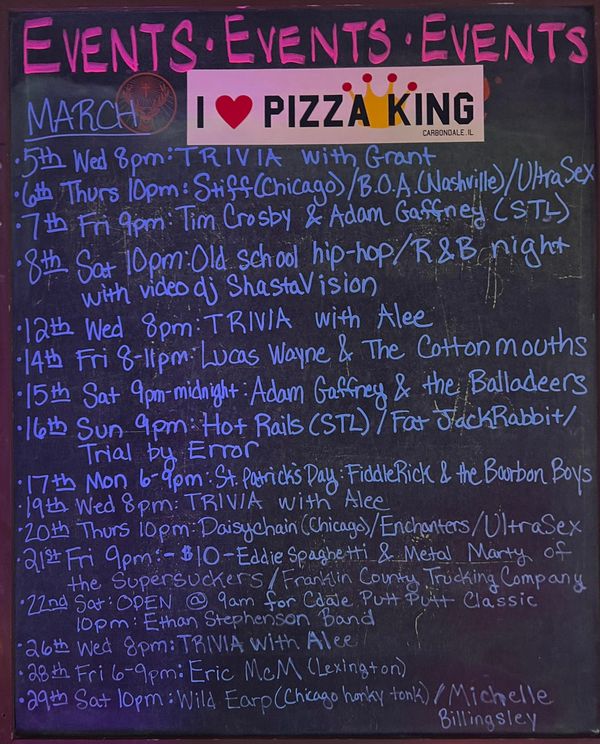 EVENTS · EVENTS · EVENTS
MARCH
I ♥ PIZZA KING
CARBONDALE, IL
·5th Wed 8pm: TRIVIA with Grant
·6th Thurs 10pm: Stiff (Chicago)/B.O.A. (Nashville)/UltraSex
·7th Fri 9pm: Tim Crosby & Adam Gaffney (STL)
·8th Sat 10pm: Old school hip-hop/R&B night
with video dj ShastaVision
·12th Wed 8pm: TRIVIA with Alee
·14th Fri 8-11pm: Lucas Wayne & The Cottonmouths
·15th Sat 9pm-midnight: Adam Gaffney & the Balladeers
·16th Sun 9pm: Hot Rails (STL) / Fat JackRabbit/
Trial by Error
·17th Mon 6-9pm: St. Patrick's Day: FiddleRick & the Bourbon Boys
·19th Wed 8pm: TRIVIA with Alee
·20th Thurs 10pm: Daisychain (Chicago)/Enchanters/UltraSex
·21st Fri 9pm: -$10- Eddie Spaghetti & Metal Marty of
the Supersuckers/Franklin County Trucking Company
·22nd Sat: OPEN @ 9am for Cdale Putt Putt Classic
10pm: Ethan Stephenson Band
·26th Wed 8pm: TRIVIA with Alee
·28th Fri 6-9pm: Eric McM (Lexington)
·29th Sat 10pm: Wild Earp (Chicago honky tonk) / Michelle
Billingsley